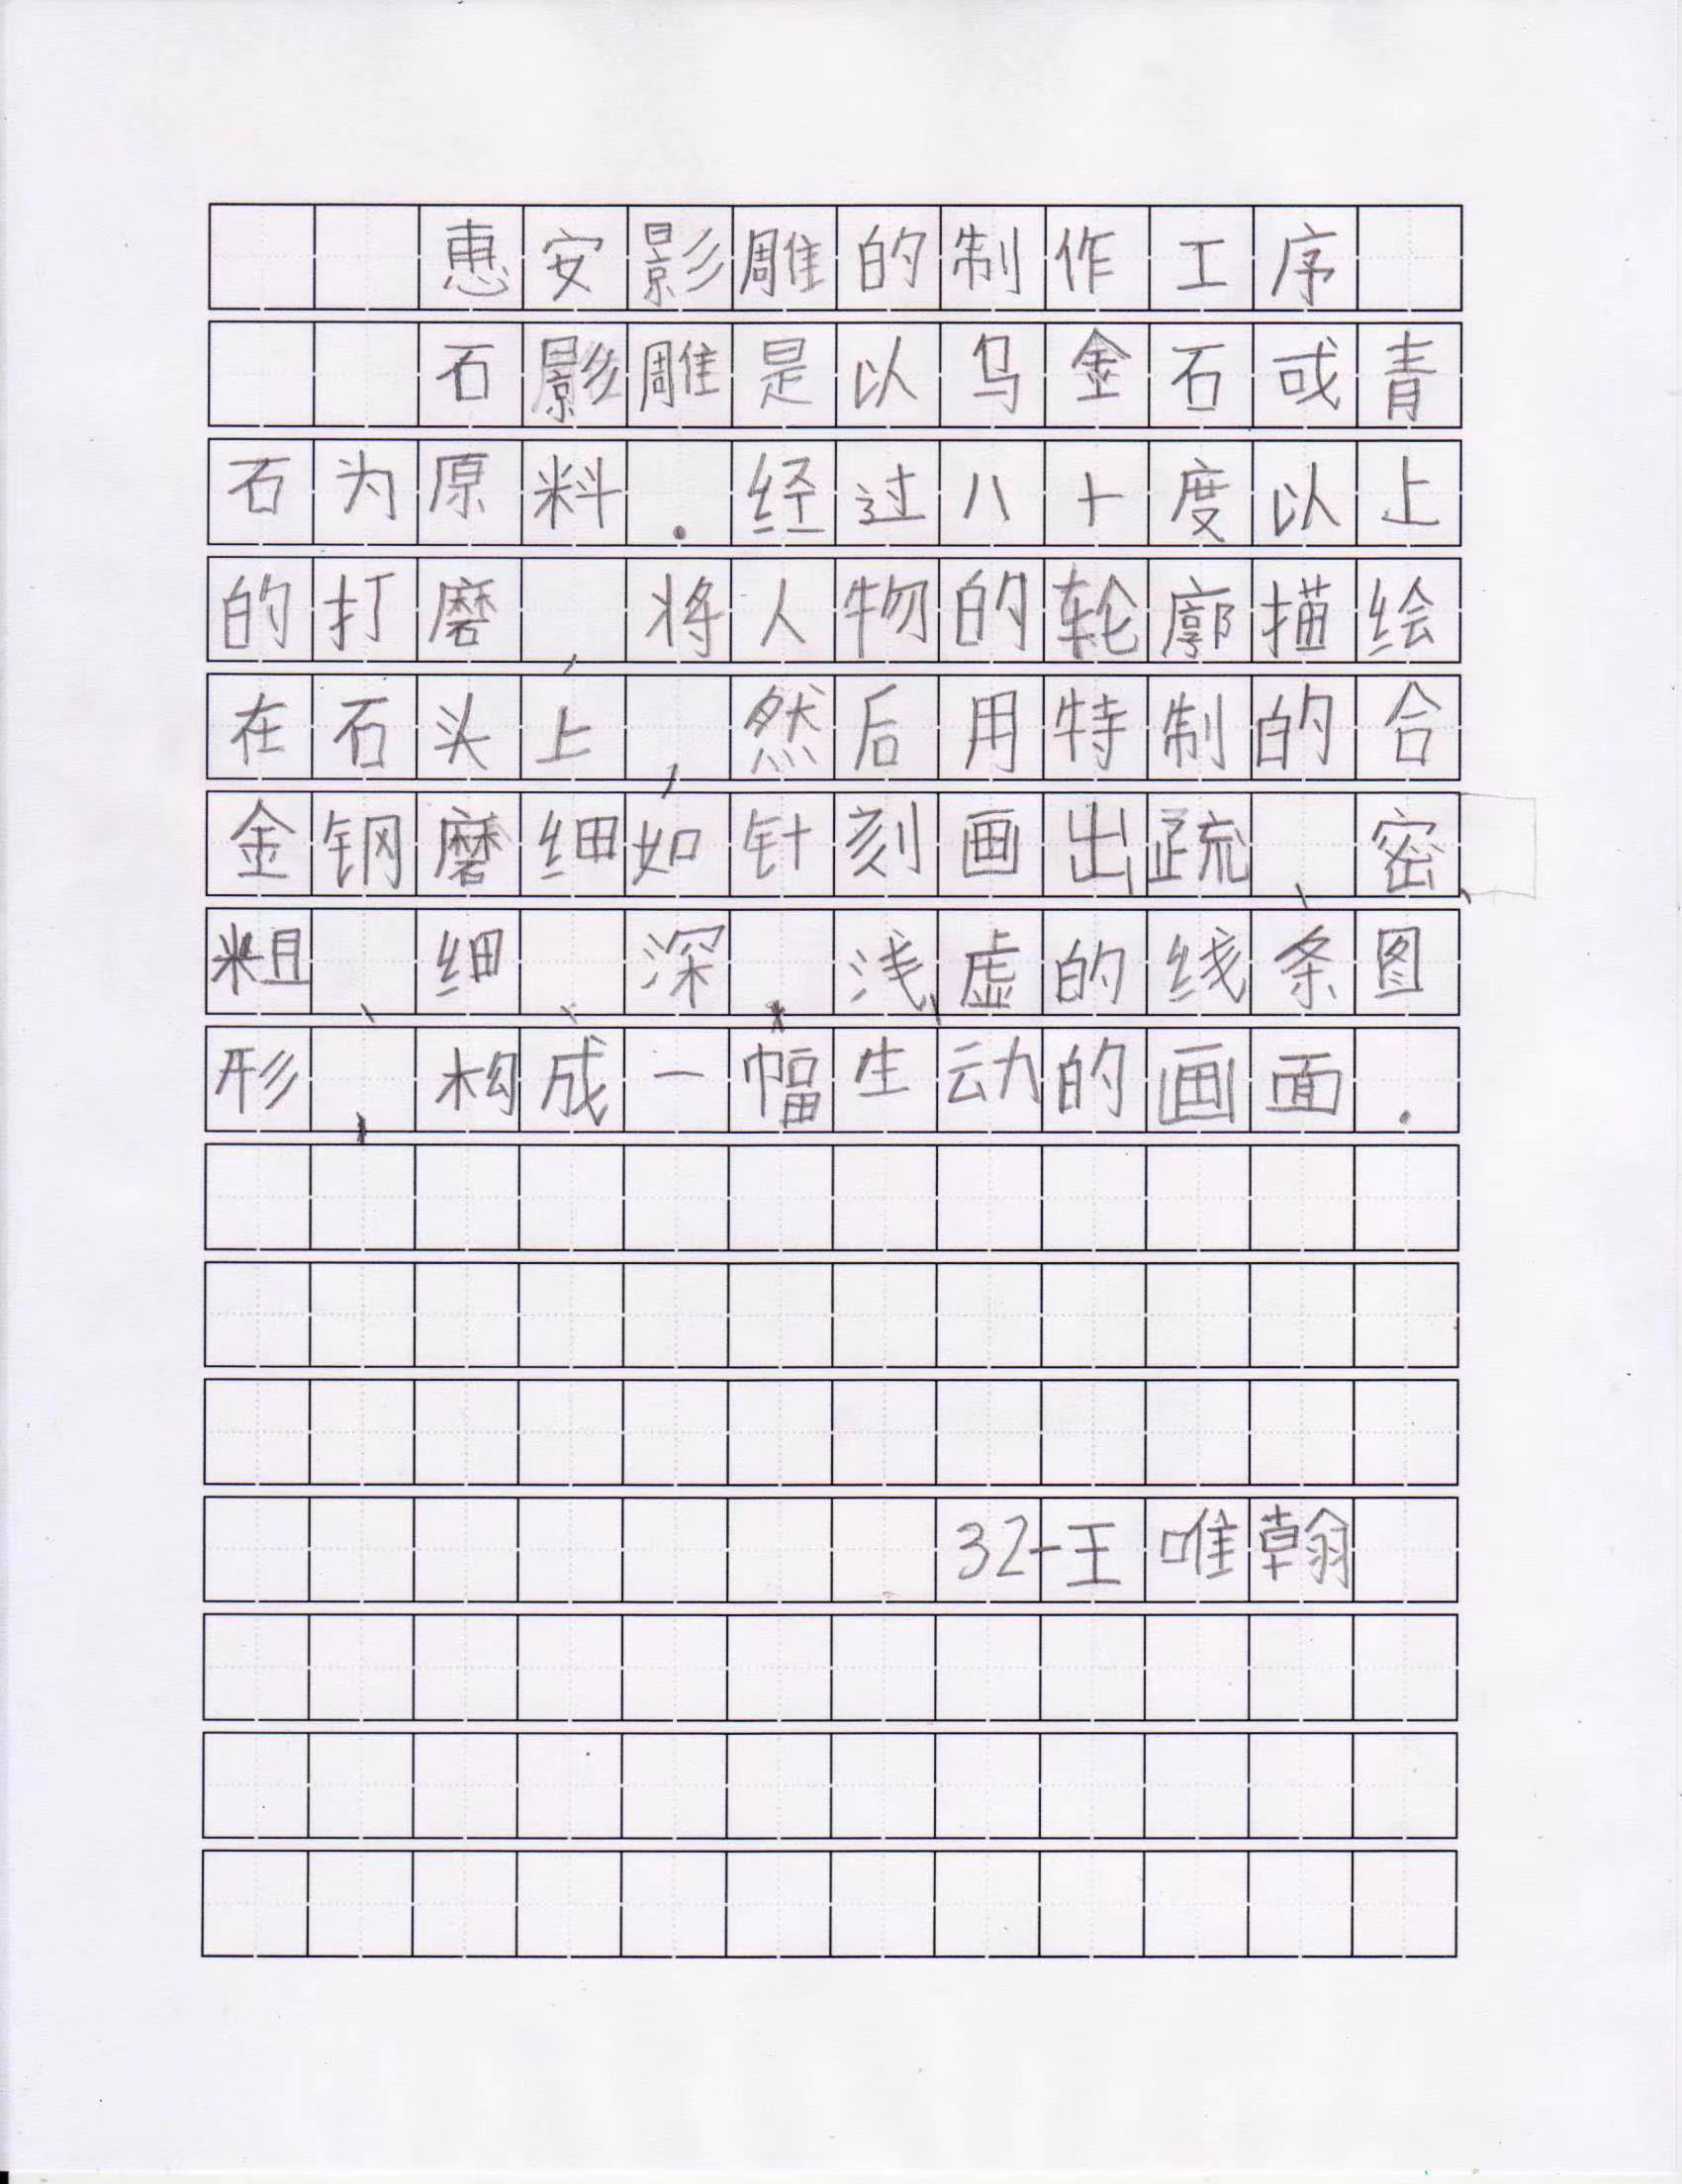 惠安影雕的制作工序
石影雕是以乌金石或青
石为原料.经过八十度以上
的打磨,将人物的轮廓描绘
在石头上,然后用特制的合
金钢磨细如针刻画出疏、密、
粗、细、深、浅、虚的线条图
形,构成一幅生动的画面.
32-王唯翰